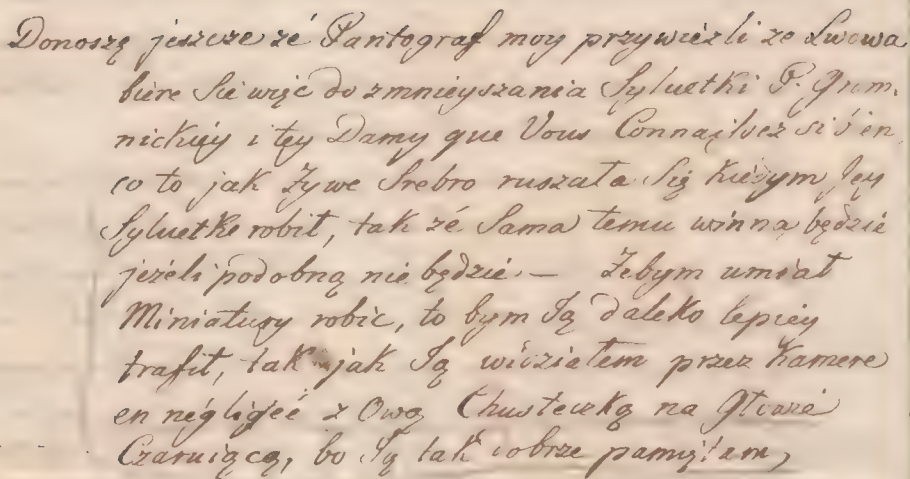 Donoszę jeszcze zé Pantograf moy przywiezli ze Lwowa
biere Sie więc do zmnieyszania Sylwetki P. Gum-
nickiéy i téy Damy que Vous Connaissez si b'en
co to jak Zywe Srebro ruszała Się kiedym Jey
Sylwetke robił, tak zé Sama temu winną będzie
jezéli podobną nie będzie. — Zebym umiał
Miniatury robic, to bym Ją daleko lepiey
trafił, tak jak Ją widziałem przez Kamere
en négligeé z Ową Chusteczką na Głowié
Czaruiącą, bo Ją tak dobrze pamiętam,